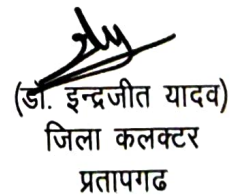 (डॉ. इन्द्रजीत यादव)
जिला कलक्टर
प्रतापगढ